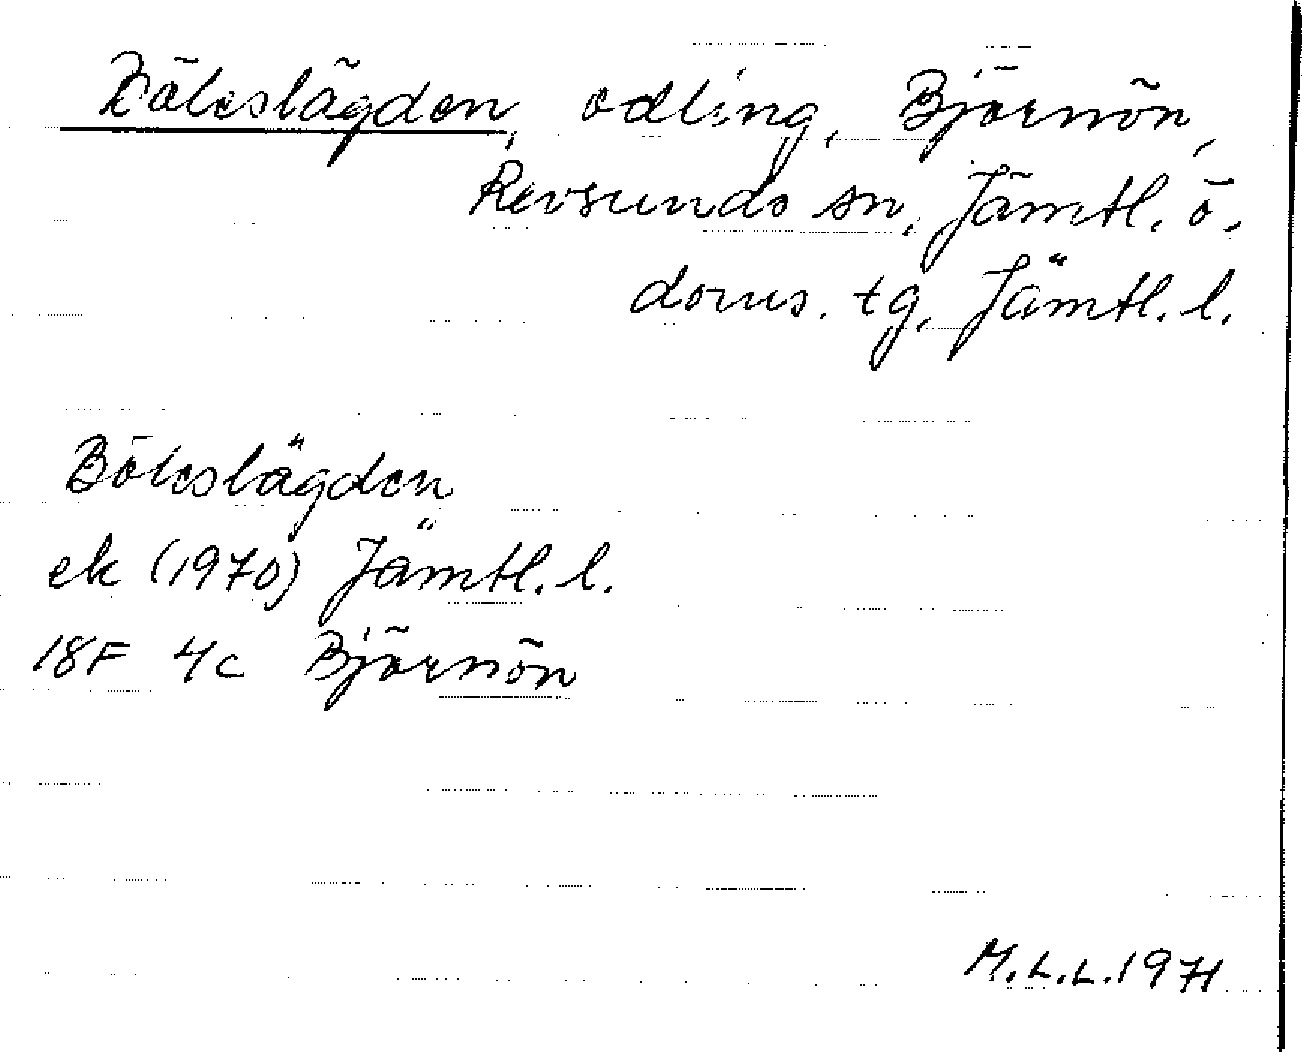 Böleslägden, odling, Björnön,
Revsunds sn, Jämtl. ö.
doms. tg, Jämtl. l.
Böleslägden
ek (1970) Jämtl. l.
18F 4c Björnön
M.L.L. 1971